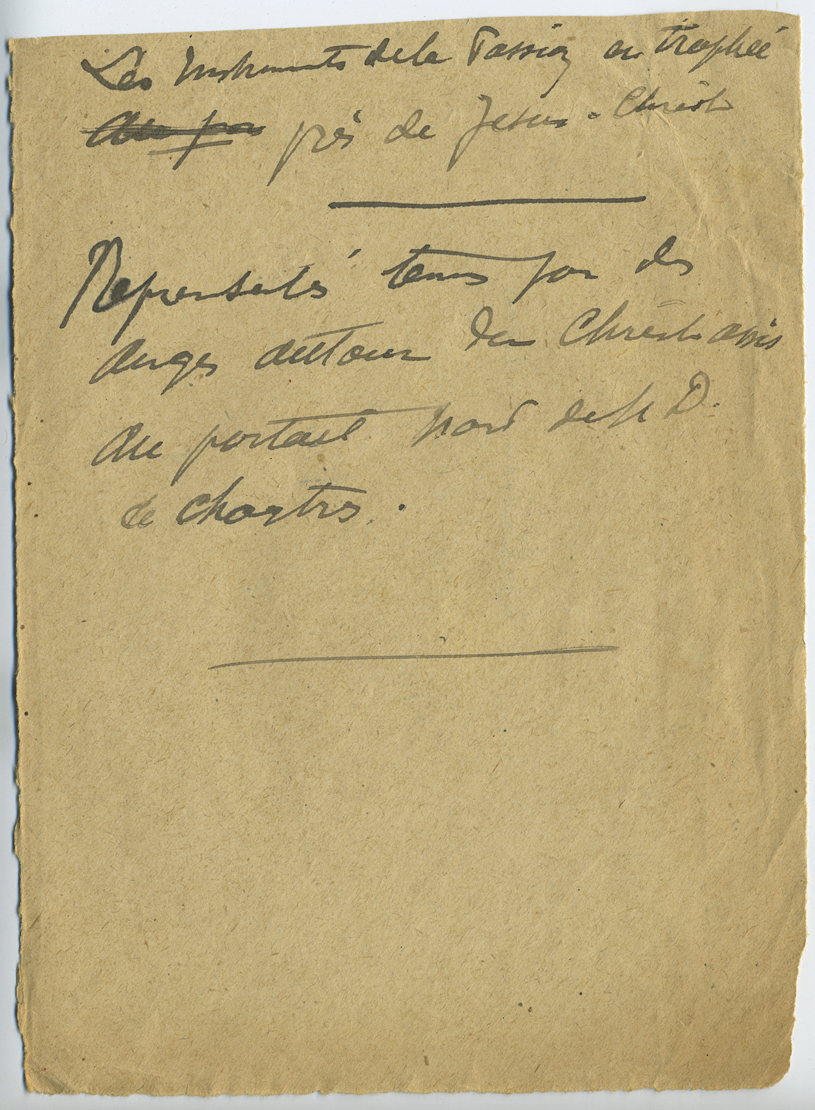 Les Instruments de la Passion en trophée
près de Jesus-Christ
Représentés tenus par des
anges autour du Christ assis
au portail Nord de N D.
de Chartres.